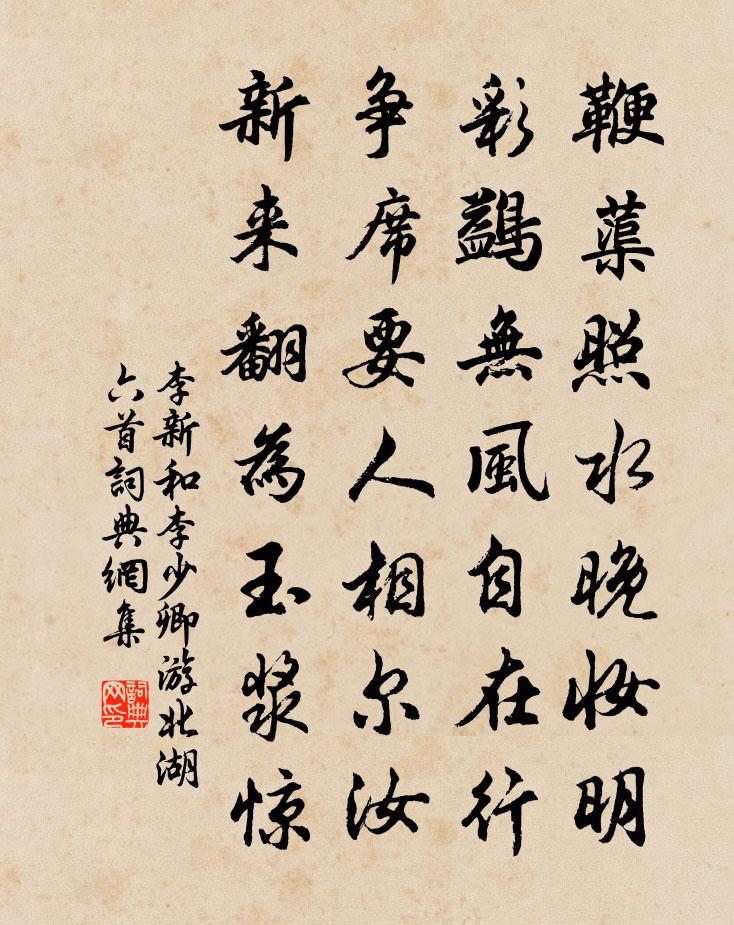 鞭蕖照水晚妆明
彩鷁無風自在行
争席要人相尔汝
新来翻為玉浆惊
李新和李少卿游北湖
六首詞典網集
詞典网印